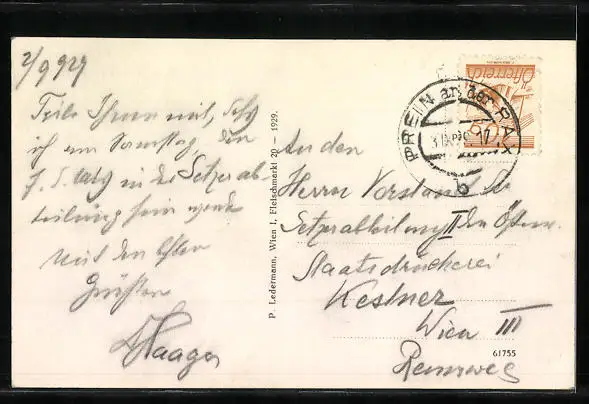 2/9 929
Teile Ihnen mit, daß
ich am Samstag, den
7. d. in die Setzerab-
teilung sein werde
Mit den besten
Grüßen
Haager
P. Ledermann, Wien I, Fleischmarkt 20 — 1929.
Österreich
PREIN an der RAX
b
An den
Herrn Vorstand der
Setzerabteilung II der Österr.
Staatsdruckerei
Kestner
Wien III
Rennweg
61755